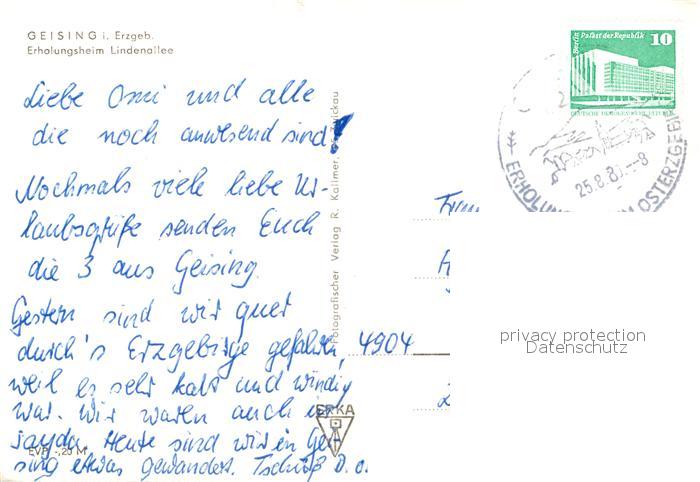 GEISING i. Erzgeb.
Erholungsheim Lindenallee
Liebe Omi und alle
die noch anwesend sind!
Nochmals viele liebe Ur-
laubsgrüße senden Euch
die 3 aus Geising.
Gestern sind wir quer
durch's Erzgebirge gefahren,
weil es sehr kalt und windig
war. Wir waren auch in
Sayda. Heute sind wir in Gei-
sing etwas gewandert. Tschüß D. O.
EVP -,20 M
Fotografischer Verlag R. Kallmer, Zwickau
ERKA
Berlin Palast der Republik 10
DEUTSCHE DEMOKRATISCHE REPUBLIK
25.8.8 -8
ERHOLUNG M OSTERZGEBI
Frau
4904
privacy protection
Datenschutz